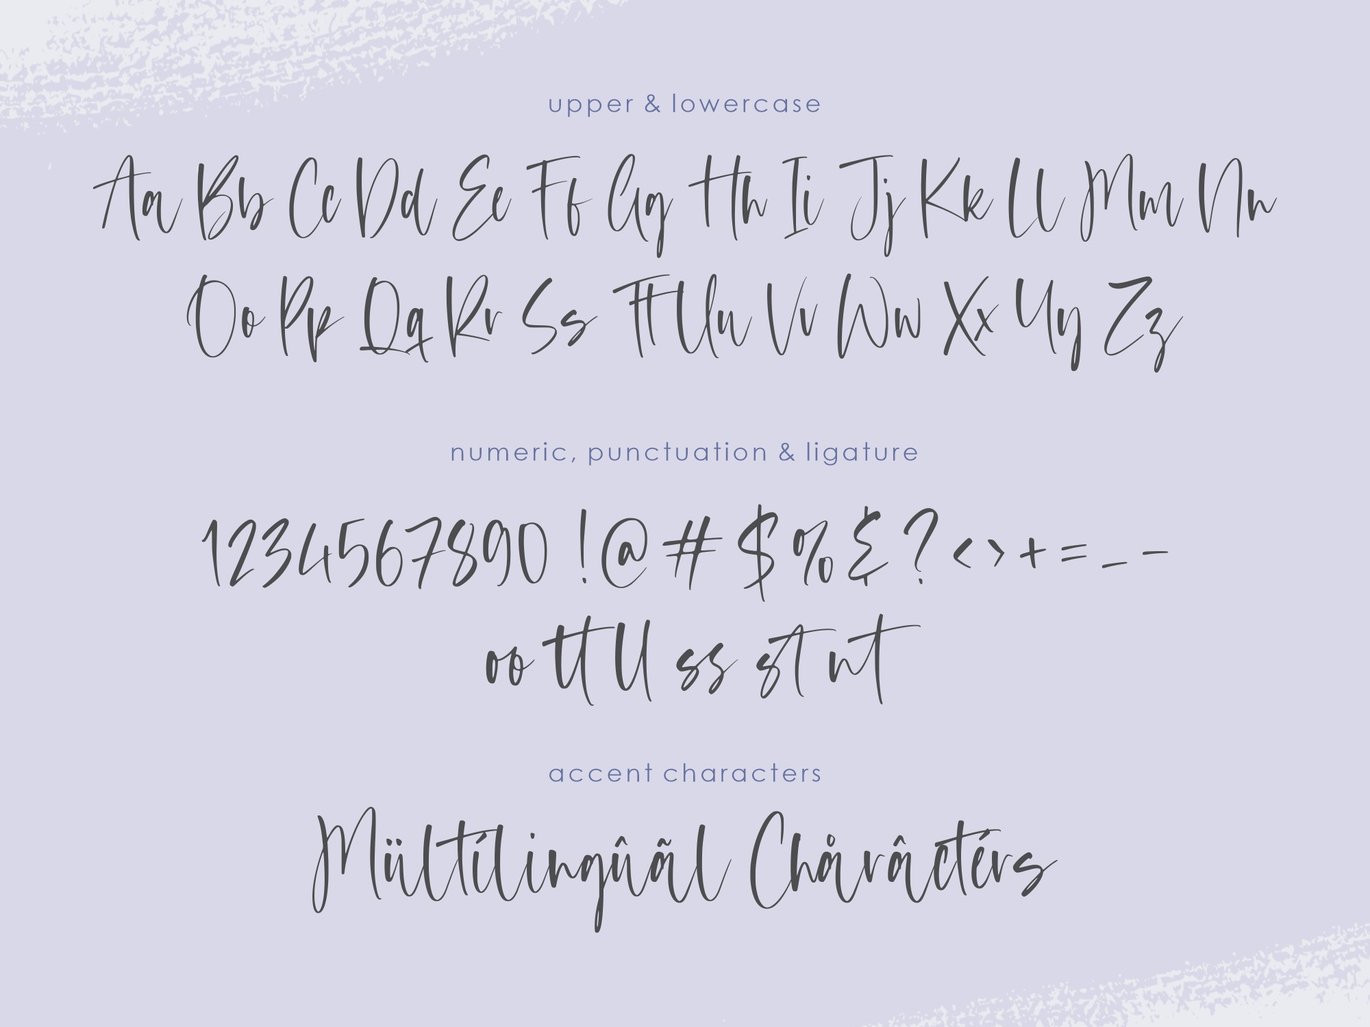 upper & lowercase
Aa Bb Cc Dd Ee Ff Gg Hh Ii Jj Kk Ll Mm Nn
Oo Pp Qq Rr Ss Tt Uu Vv Ww Xx Yy Zz
numeric, punctuation & ligature
1234567890 !@#$%&?<>+=_-
oo tt ll ss st nt
accent characters
Mültílingûãl Chåráctérs